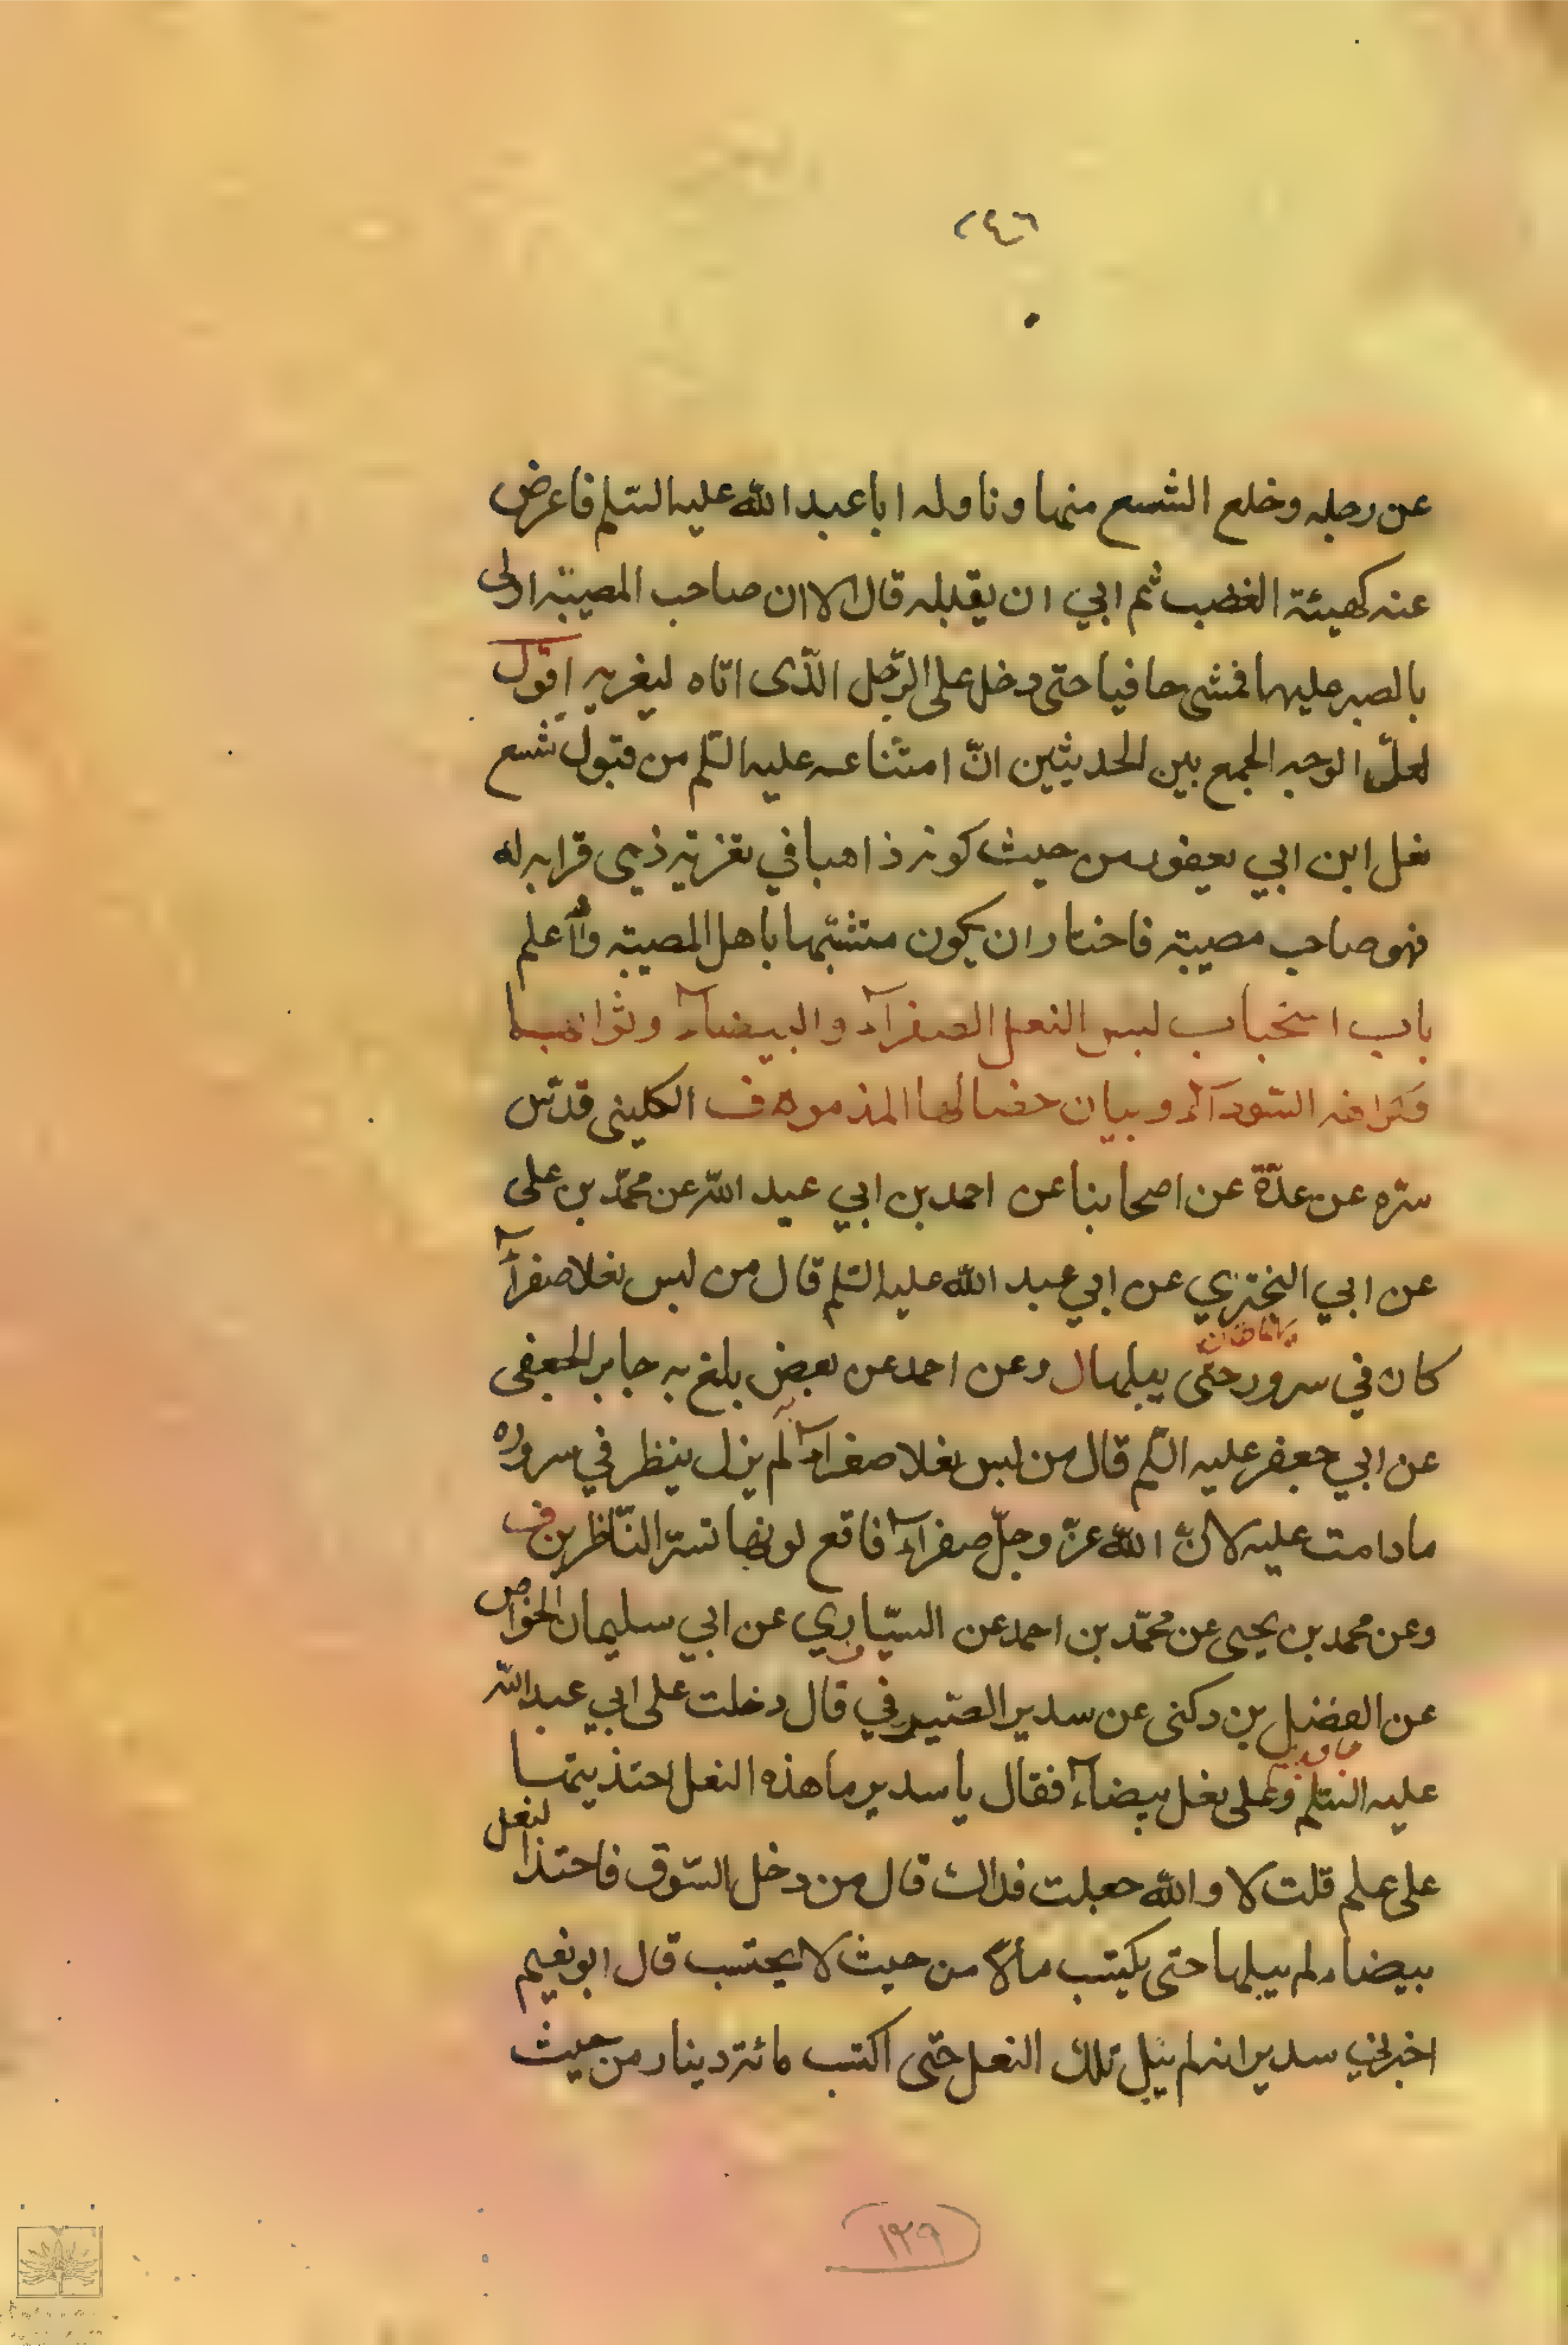 ٢٤٦
عن رجله وخلع الشسع منها وناوله ابا عبد الله عليه السّلم فاعرض
عنه كهيئة الغضب ثم ابي ان يقبله قال الا ان صاحب المصيبة اولى
بالصبر عليها فمشى حافيا حتى دخل على الرّجل الّذى اتاه ليغريه اقول
لعلّ الوجه الجمع بين الحديثين انّ امتناعه عليه السّلم من قبول شسع
نعل ابن ابي يعفور من حيث كونه ذاهبا في تعزية ذي قرابه له
فهو صاحب مصيبة فاختار ان يكون متشبّها باهل المصيبة واللّه اعلم
باب استحباب لبس النعل الصفرآء والبيضآء وثوابهما
وكراهة السّودآء وبيان خصالها المذمومه ف الكلينى قدّس
سرّه عن عدّة عن اصحابنا عن احمد بن ابي عبد اللّه عن محمّد بن على
عن ابي البختري عن ابي عبد الله عليه السّلم قال من لبس نعلا صفرآء
كان في سرور حتّى يبلها ل وعن احمد عن بعض بلغ به جابر الجعفى
عن ابي جعفر عليه السّلم قال من لبس نعلا صفرآء لم يزل ينظر في سروره
ما دامت عليه لانّ اللّه عزّ وجلّ صفرآء فاقع لونها تسرّ النّاظرين ف
وعن محمد بن يحيى عن محمّد بن احمد عن السيّاري عن ابي سليمان الخواص
عن الفضل بن دكنى عن سدير الصّيرفي قال دخلت على ابي عبد اللّه
عليه السّلم وعلى نعل بيضآء فقال يا سدير ما هذه النعل احتذيتها
على علم قلت لا واللّه جعلت فداك قال من دخل السّوق فاحتذا لنعل
بيضاء لم يبلها حتى يكتسب مالا من حيث لا يحتسب قال ابو نعيم
اخبرني سدير انه لم يبل تلك النعل حتّى اكتسب مائة دينار من حيث
١٢٩